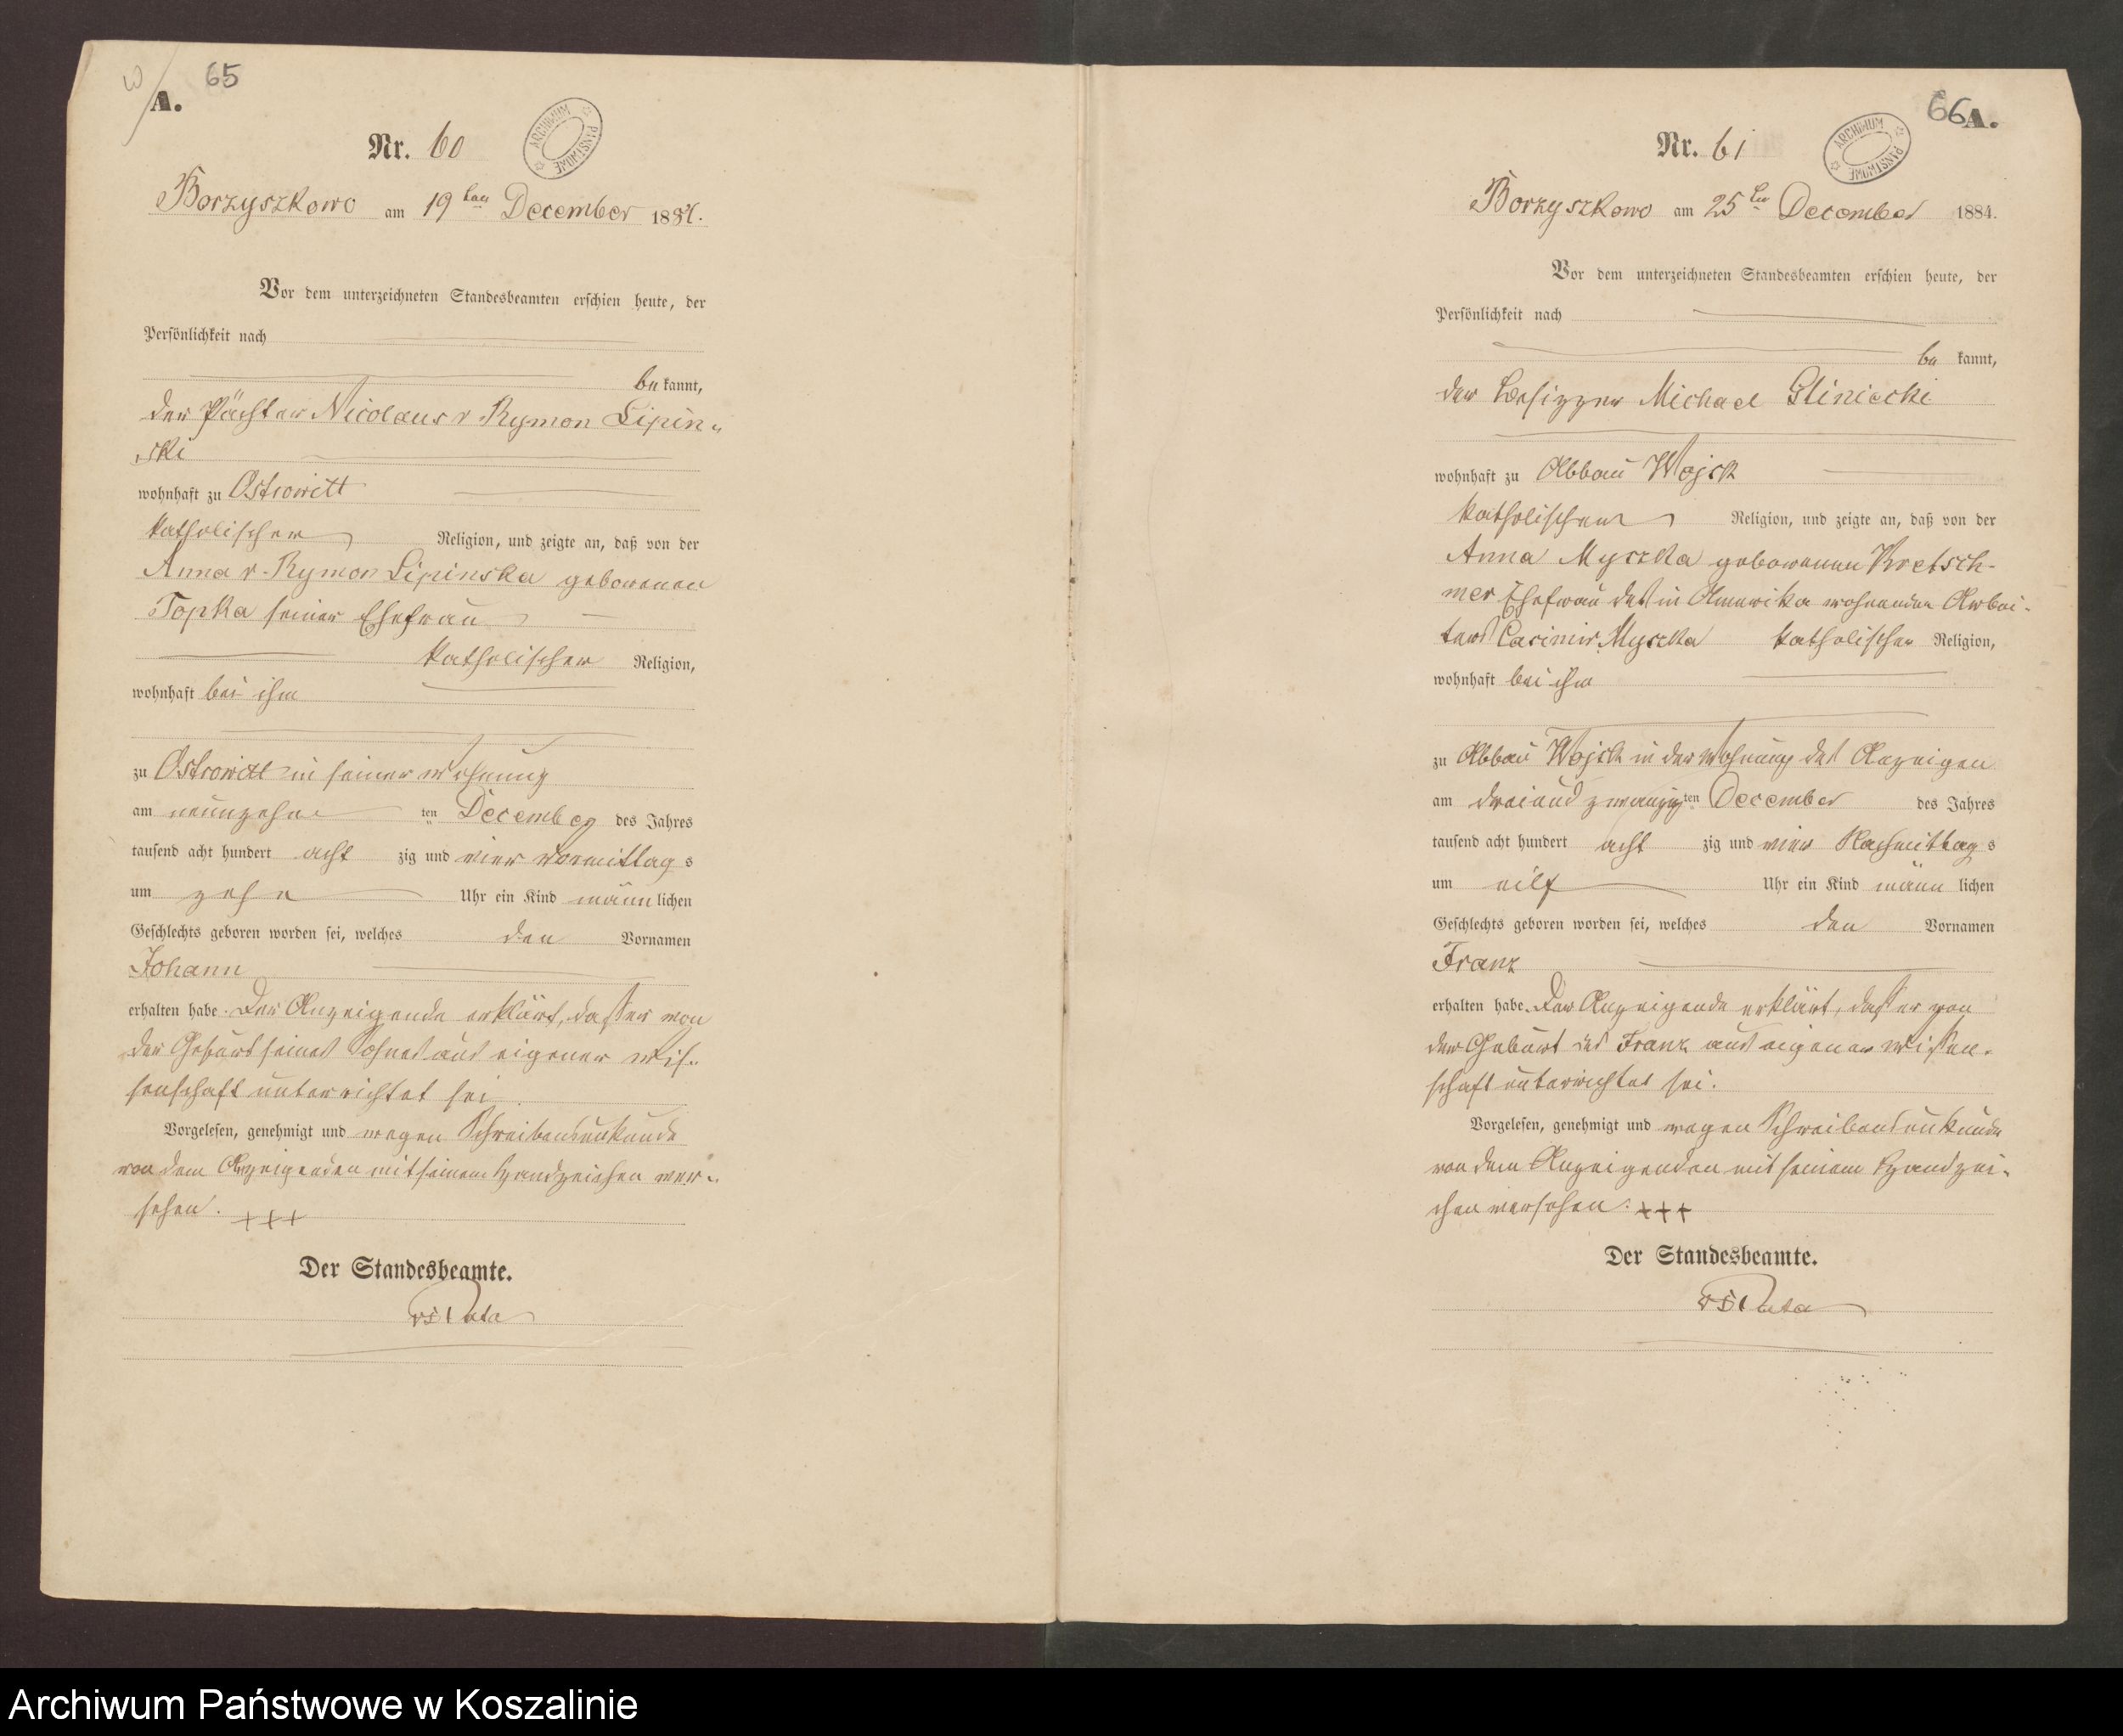 65
A.
Nr. 60
ARCHIWUM PAŃSTWOWE
Borzyszkowo am 19ten December 1884.
Vor dem unterzeichneten Standesbeamten erschien heute, der
Persönlichkeit nach
be kannt,
der Pächter Nicolaus v Rymon Lipin-
ski
wohnhaft zu Ostrowitt
katholischer Religion, und zeigte an, daß von der
Anna v. Rymon Lipinska geborenen
Topka seiner Ehefrau
katholischer Religion,
wohnhaft bei ihm
zu Ostrowitt in seiner Wohnung
am neunzehn ten December des Jahres
tausend acht hundert acht zig und vier Vormittag s
um zehn Uhr ein Kind männ lichen
Geschlechts geboren worden sei, welches den Vornamen
Johann
erhalten habe. Der Anzeigende erklärt, daß er von
der Geburt seines Sohnes aus eigener Wis-
senschaft unterrichtet sei.
Vorgelesen, genehmigt und wegen Schreibensunkunde
von dem Anzeigenden mit seinem Handzeichen ver-
sehen. +++
Der Standesbeamte.
66 A.
Nr. 61
ARCHIWUM PAŃSTWOWE
Borzyszkowo am 25ten December 1884.
Vor dem unterzeichneten Standesbeamten erschien heute, der
Persönlichkeit nach
be kannt,
der Besitzer Michael Gliniecki
wohnhaft zu Abbau Wojsk
katholischer Religion, und zeigte an, daß von der
Anna Myszka geborenen Kretsch-
mer Ehefrau des in Amerika wohnenden Arbei-
ters Casimir Myszka katholischer Religion,
wohnhaft bei ihm
zu Abbau Wojsk in der Wohnung des Anzeigen
am dreiundzwanzig ten December des Jahres
tausend acht hundert acht zig und vier Nachmittag s
um eilf Uhr ein Kind männ lichen
Geschlechts geboren worden sei, welches den Vornamen
Franz
erhalten habe. Der Anzeigende erklärt, daß er von
der Geburt des Franz aus eigener Wissen-
schaft unterrichtet sei.
Vorgelesen, genehmigt und wegen Schreibensunkunde
von dem Anzeigenden mit seinem Handzei-
chen versehen. +++
Der Standesbeamte.
Archiwum Państwowe w Koszalinie